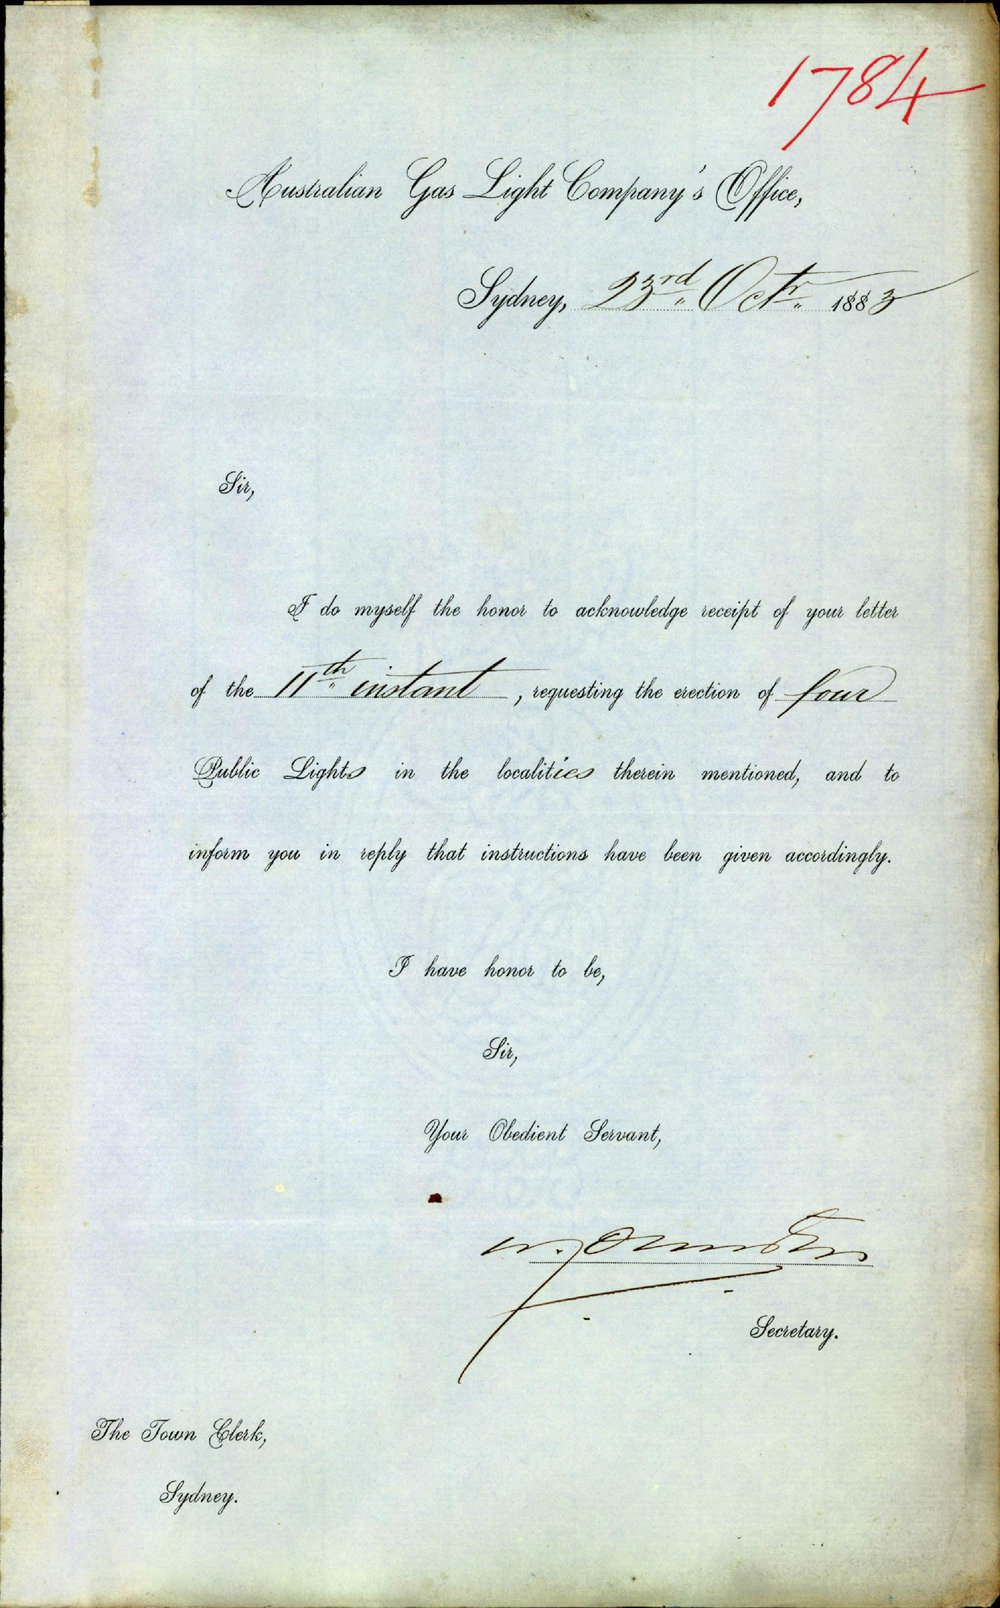 1784
Australian Gas Light Company's Office,
Sydney, 23rd Octr. 1883
Sir,
I do myself the honor to acknowledge receipt of your letter
of the 11th instant, requesting the erection of four
Public Lights in the localities therein mentioned, and to
inform you in reply that instructions have been given accordingly.
I have honor to be,
Sir,
Your Obedient Servant,
Secretary.
The Town Clerk,
Sydney.